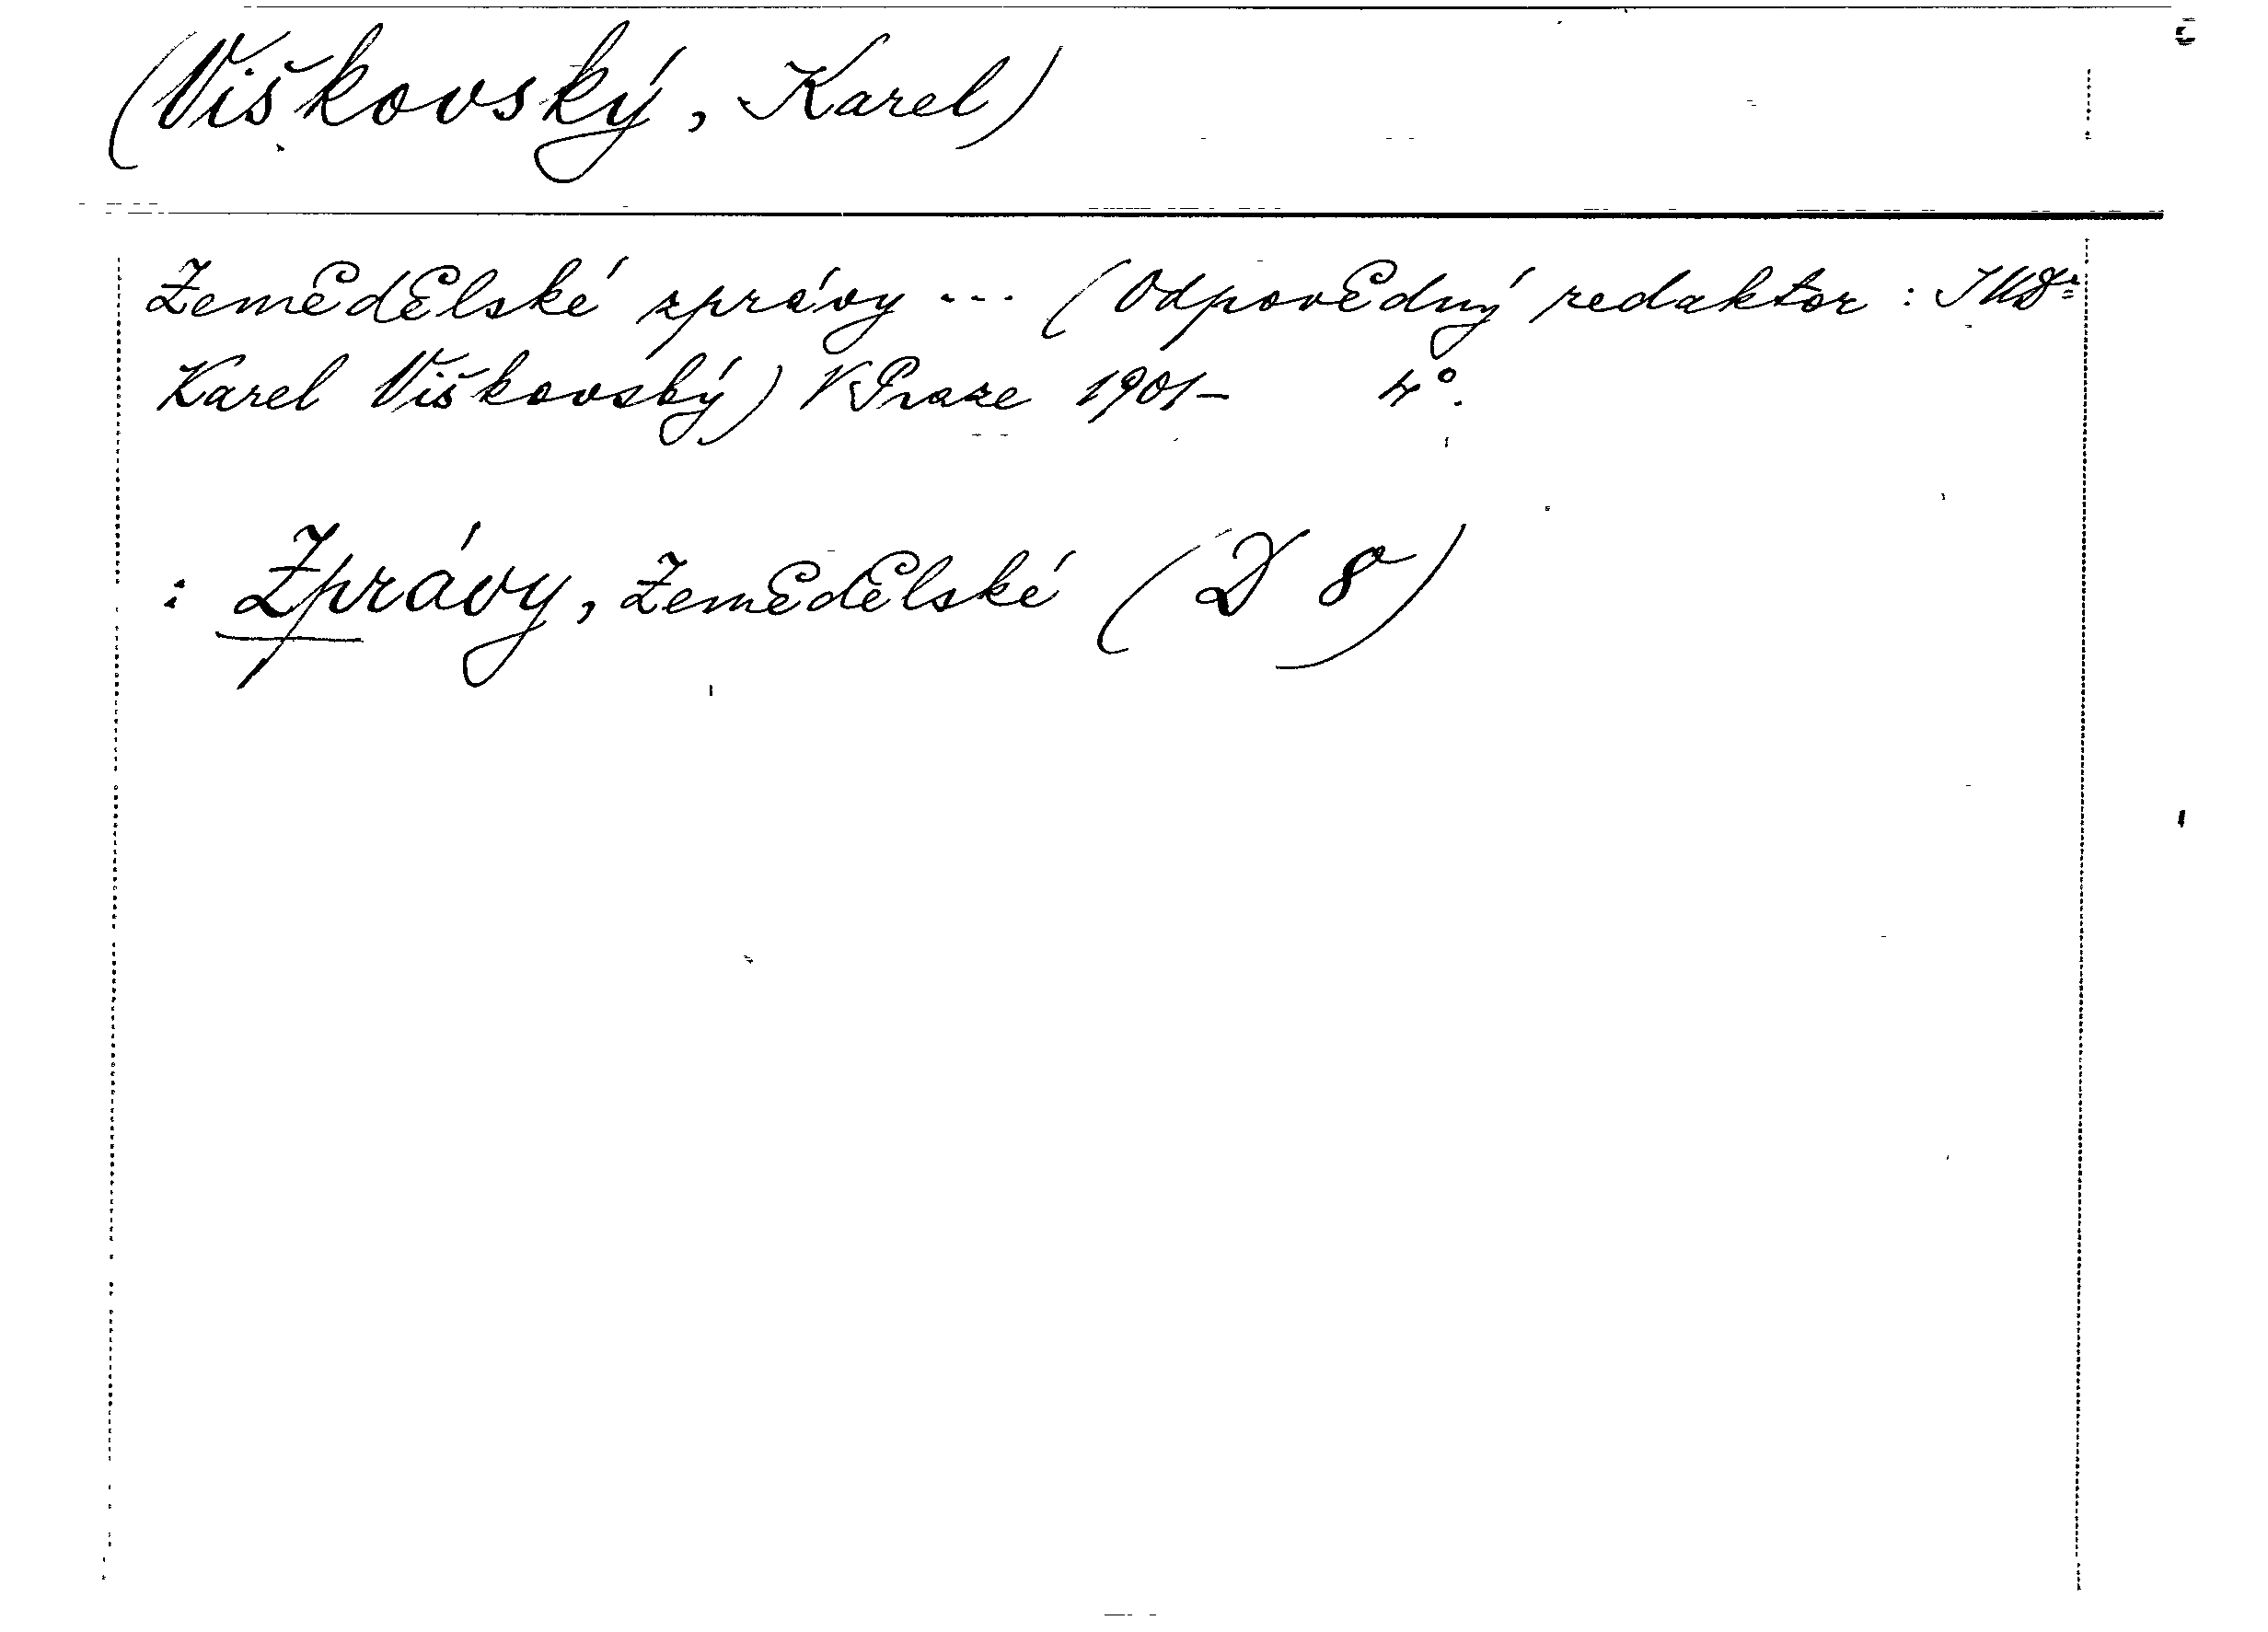 (Viškovský, Karel)
Zemědělské zprávy ... (Odpovědný redaktor : JUDr
Karel Viškovský) V Praze 1901- 4°.
: Zprávy, Zemědělské (D 8)